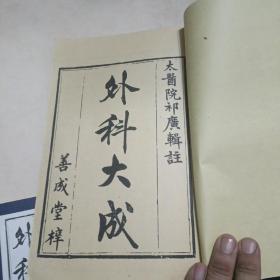 太醫院祁廣輯註
外科大成
善成堂梓
外科